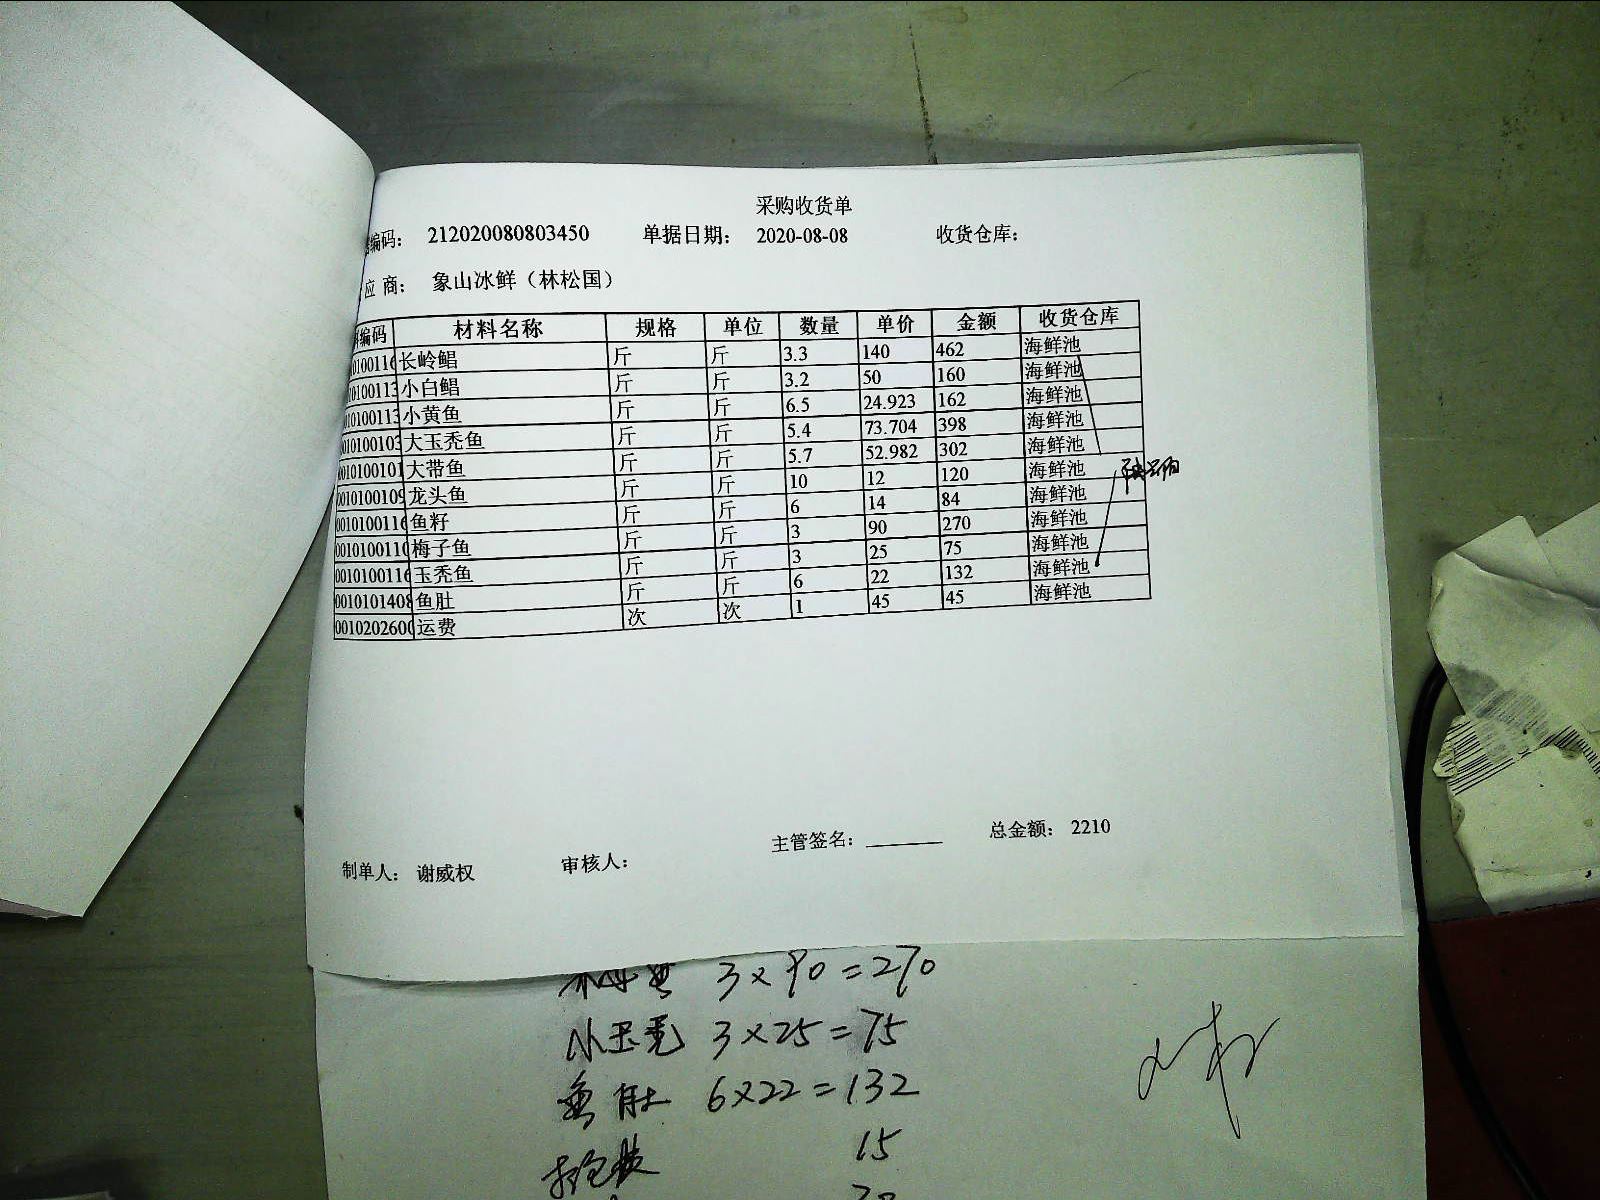 采购收货单
编码： 212020080803450 单据日期： 2020-08-08 收货仓库：
应 商： 象山冰鲜（林松国）
编码 材料名称 规格 单位 数量 单价 金额 收货仓库
0100116 长岭鲳 斤 斤 3.3 140 462 海鲜池
0100113 小白鲳 斤 斤 3.2 50 160 海鲜池
010100113 小黄鱼 斤 斤 6.5 24.923 162 海鲜池
010100103 大玉秃鱼 斤 斤 5.4 73.704 398 海鲜池
0010100101 大带鱼 斤 斤 5.7 52.982 302 海鲜池
0010100109 龙头鱼 斤 斤 10 12 120 海鲜池
0010100116 鱼籽 斤 斤 6 14 84 海鲜池
0010100110 梅子鱼 斤 斤 3 90 270 海鲜池
0010100116 玉秃鱼 斤 斤 3 25 75 海鲜池
0010101408 鱼肚 斤 斤 6 22 132 海鲜池
0010202600 运费 次 次 1 45 45 海鲜池
制单人： 谢威权 审核人： 主管签名： 总金额： 2210
3×90=270
小玉秃 3×25=75
鱼肚 6×22=132
15